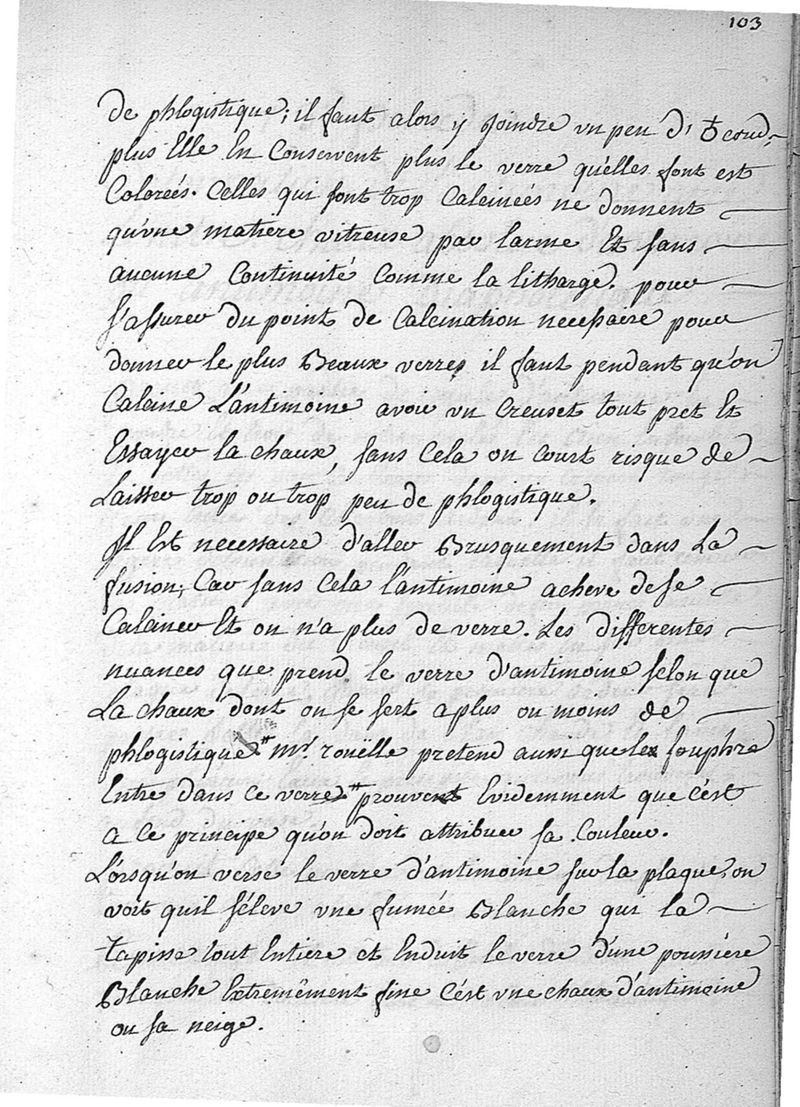 103
de phlogistique; il faut alors y joindre un peu d'♁ crud,
plus Elle En Conservent plus le verre qu'elles font est
Coloreés. Celles qui font trop Calcineés ne donnent
qu'vne matiere vitreuse par larme Et sans
aucune Continuité Comme la litharge. pour
s'assurer du point de Calcination necessaire pour
donner le plus Beaux verres il faut pendant qu'on
Calcine L'antimoine avoir vn Creuset tout pret Et
Essayer la chaux, sans Cela on court risque de
Laisser trop ou trop peu de phlogistique.
Il Est necessaire d'aller Brusquement dans La
fusion, Car sans Cela l'antimoine acheve de se
Calciner Et on n'a plus de verre. Les differentes
nuances que prend le verre d'antimoine selon que
La chaux dont on se sert a plus ou moins de
phlogistique # mr rouëlle pretend aussi que le souphre
Entre dans ce verre # prouvent Evidemment que c'est
a ce principe qu'on doit attribuer sa Couleur.
Lórsqu'on verse le verre d'antimoine sur la plaque, on
voit quil s'éleve vne fumée Blanche qui la
tapisse tout Entiere et Enduit le verre d'une poussiére
Blanche Extremêment fine C'est vne chaux d'antimoine
ou sa neige.